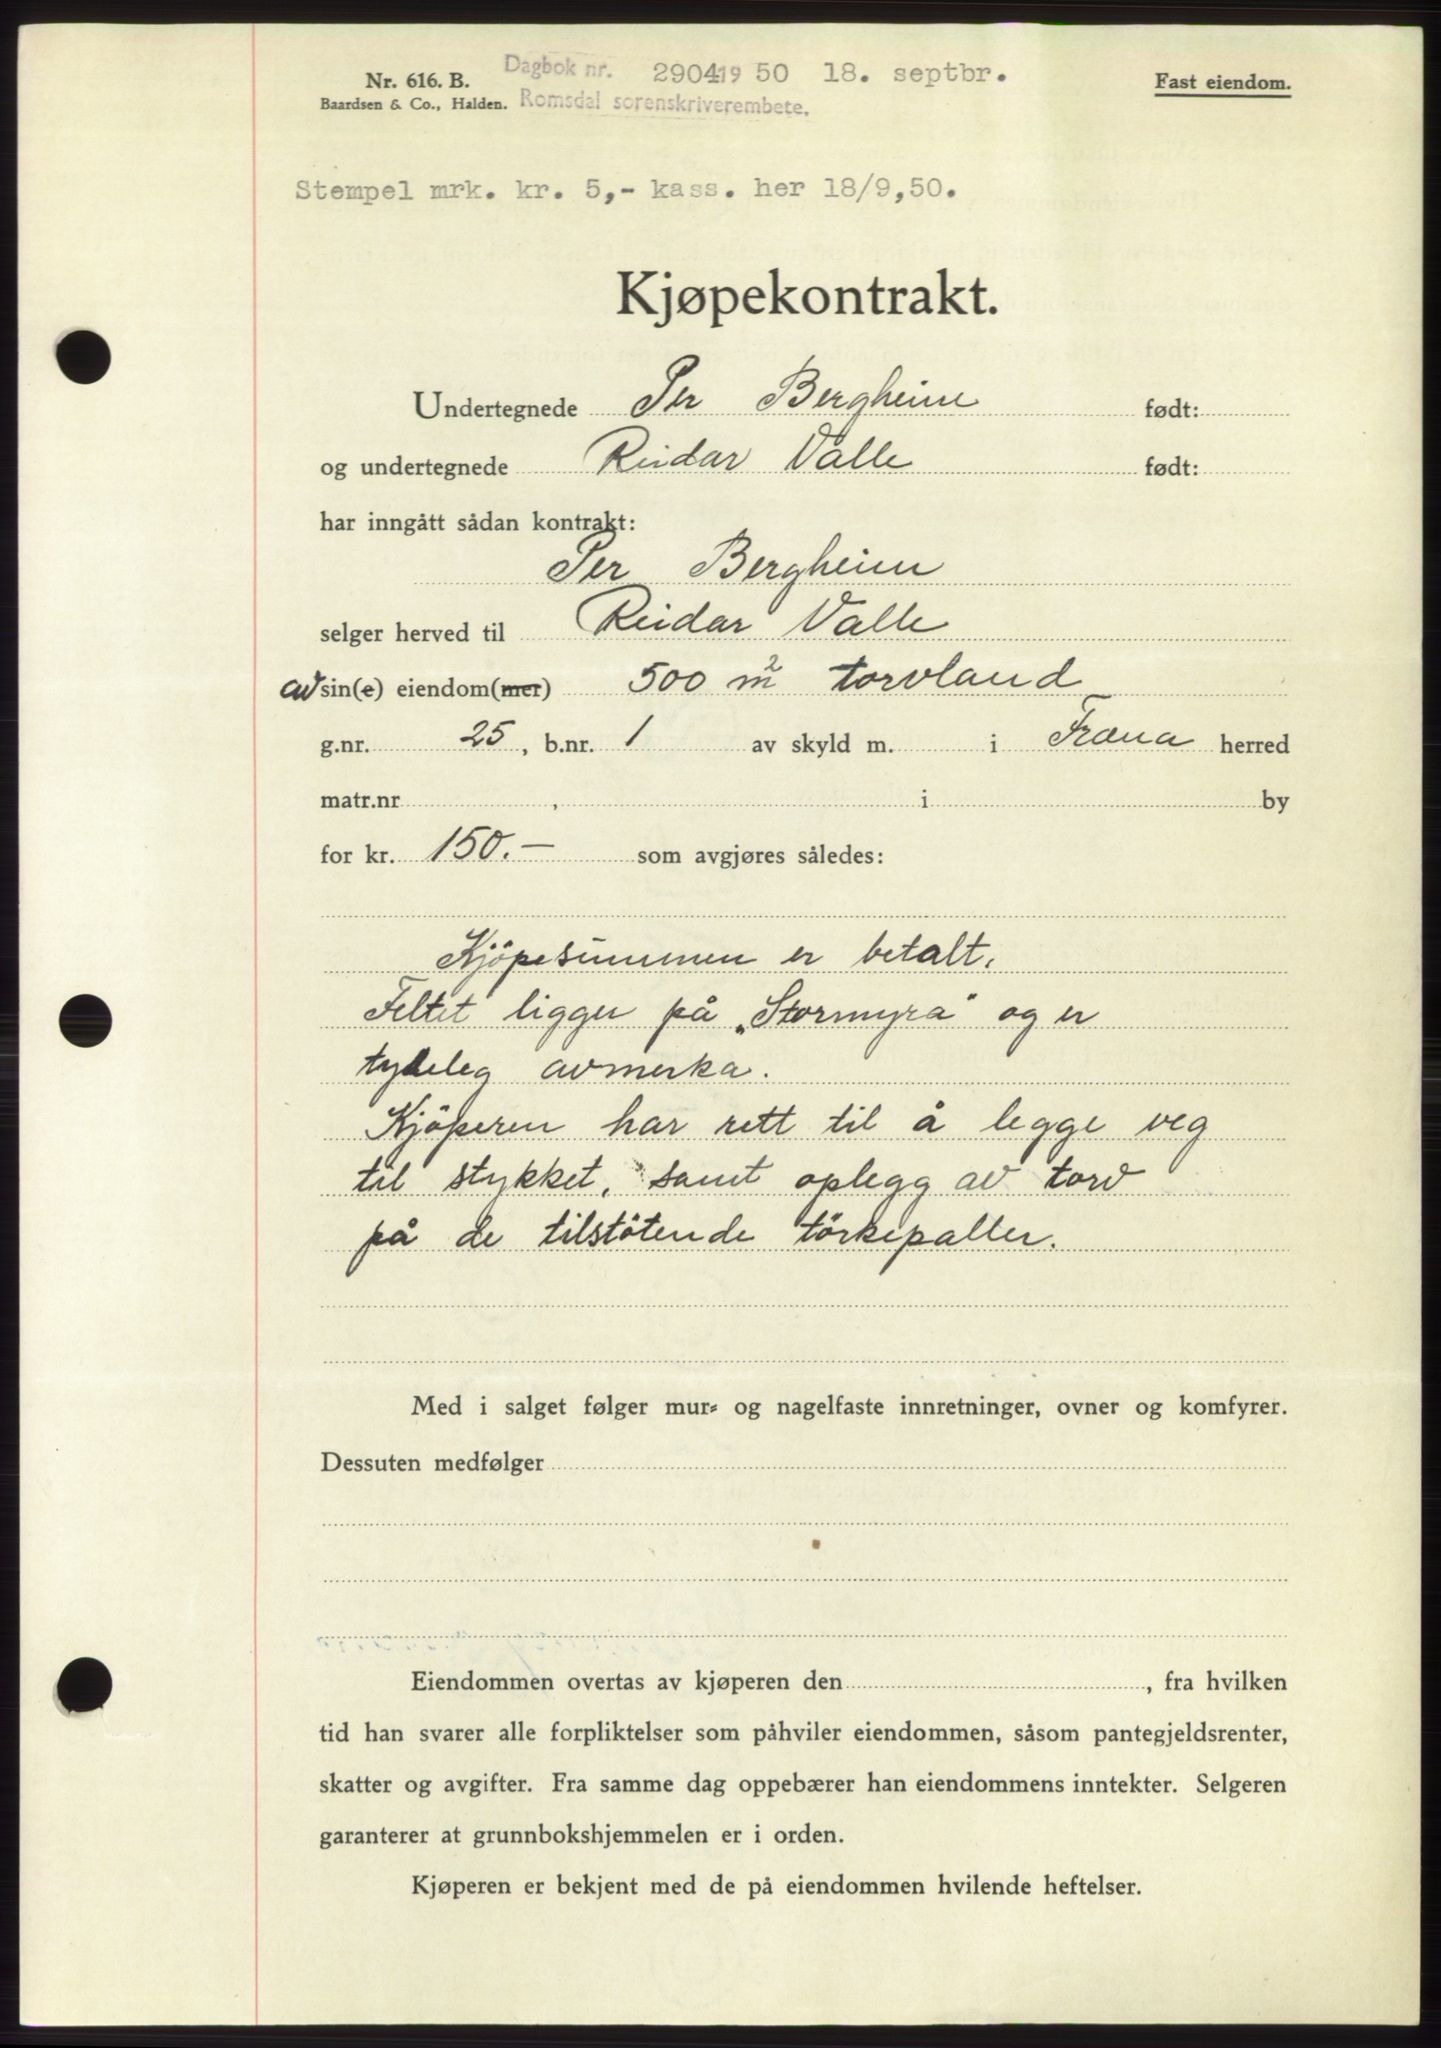 Nr. 616. B.
Baardsen & Co., Halden.
Dagbok nr. 2904 19 50 18. septbr.
Romsdal sorenskriverembete.
Fast eiendom.
Stempel mrk. kr. 5,- kass. her 18/9,50.
Kjøpekontrakt.
Undertegnede Per Bergheim født:
og undertegnede Reidar Valle født:
har inngått sådan kontrakt:
Per Bergheim
selger herved til Reidar Valle
av sin(e) eiendom(mer) 500 m² torvland
g.nr. 25, b.nr. 1 av skyld m. i Fræna herred
matr.nr , i by
for kr. 150.- som avgjøres således:
Kjöpesummen er betalt.
Feltet ligger på „Stormyra" og er
tydeleg avmerka.
Kjöperen har rett til å legge veg
til stykket, samt oplegg av torv
på de tilstötende törkepaller.
Med i salget følger mur- og nagelfaste innretninger, ovner og komfyrer.
Dessuten medfølger
Eiendommen overtas av kjøperen den , fra hvilken
tid han svarer alle forpliktelser som påhviler eiendommen, såsom pantegjeldsrenter,
skatter og avgifter. Fra samme dag oppebærer han eiendommens inntekter. Selgeren
garanterer at grunnbokshjemmelen er i orden.
Kjøperen er bekjent med de på eiendommen hvilende heftelser.